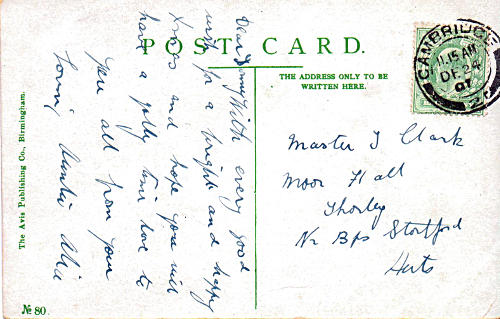 POST CARD.
THE ADDRESS ONLY TO BE
WRITTEN HERE.
CAMBRIDGE
11.15 AM
DE 24
07
Dear With every good
wish for a bright and happy
Xmas and hope you will
have a jolly time love to
you all from your
loving Auntie
Master J Clark
Moor Hall
Thorley
Nr Bps Stortford
Herts
The Avis Publishing Co., Birmingham.
№ 80